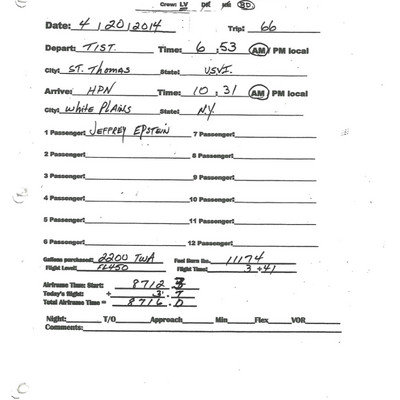 Crew: LV BD
Date: 4 / 20 / 2014 Trip: 66
Depart: TIST. Time: 6 : 53 AM/ PM local
City: ST. Thomas State: USVI.
Arrive: HPN Time: 10 : 31 AM/ PM local
City: White Plains State: N.Y.
1 Passenger: JEFFREY EPSTEIN 7 Passenger:
2 Passenger: 8 Passenger:
3 Passenger: 9 Passenger:
4 Passenger: 10 Passenger:
5 Passenger: 11 Passenger:
6 Passenger: 12 Passenger:
Gallons purchased: 2200 TWA Fuel Burn lbs. 11174
Flight Level: FL450 Flight Time: 3 + 41
Airframe Time: Start: 8712
Today's flight: + 3.7
Total Airframe Time = 8716.0
Night: T/O Approach Min Flex VOR
Comments: